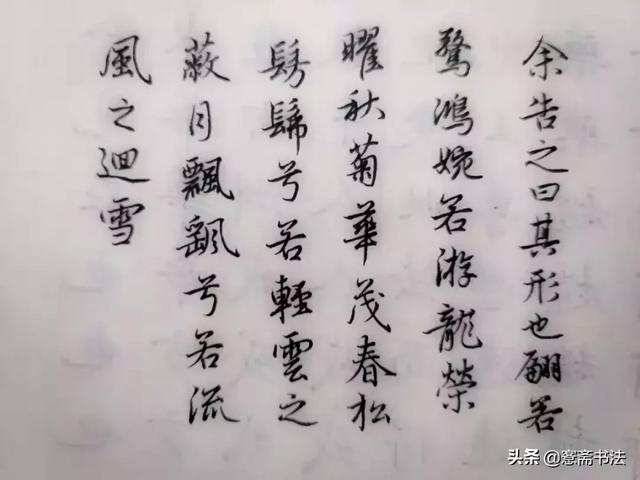 余告之曰其形也翩若
驚鴻婉若游龍榮
曜秋菊華茂春松
髣髴兮若輕雲之
蔽月飄颻兮若流
風之迴雪
头条@窓斋书法